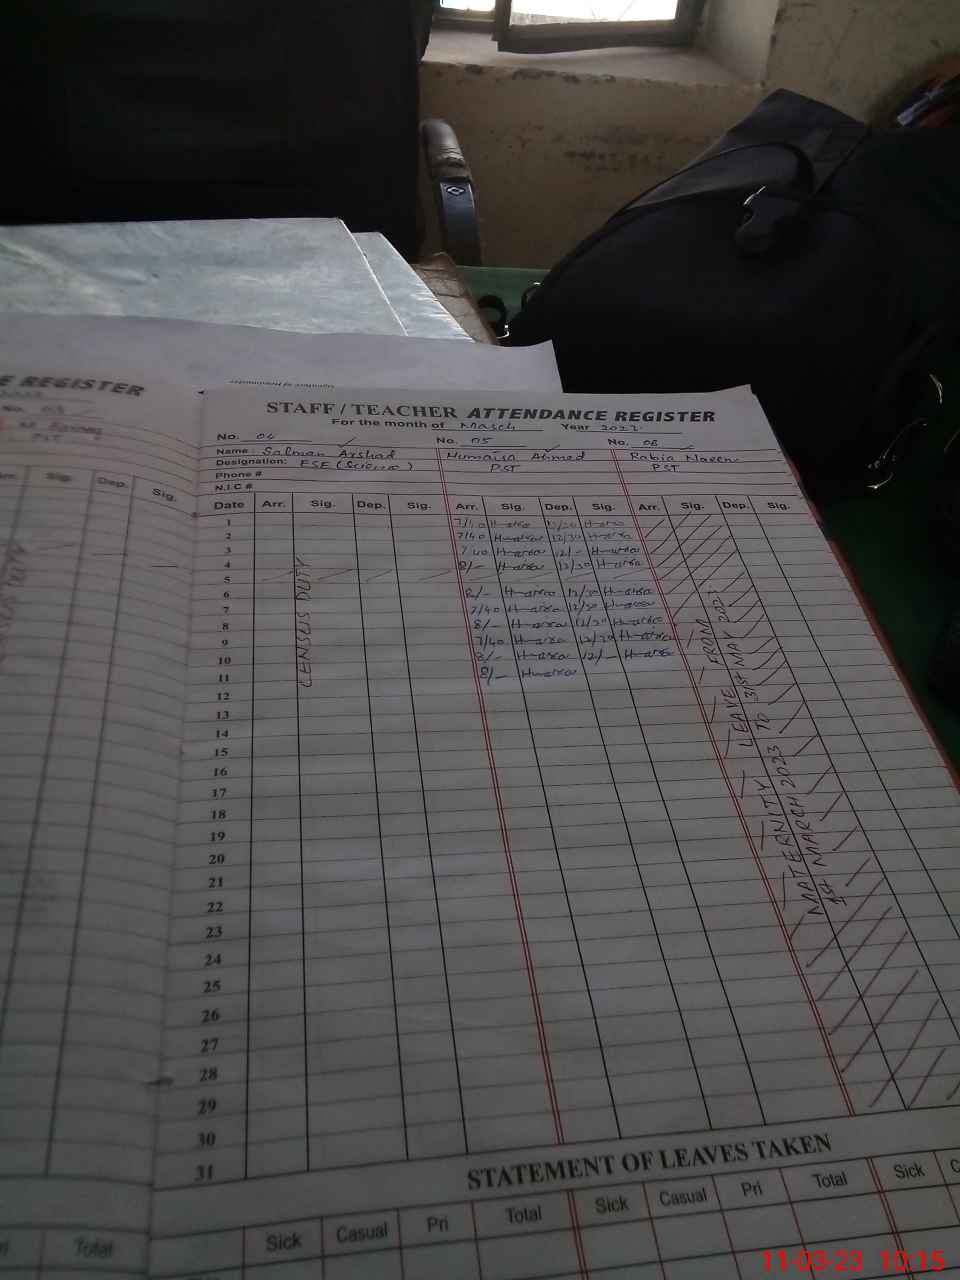 E REGISTER
No. 03
PST
Sig. Dep. Sig.
STAFF / TEACHER ATTENDANCE REGISTER
For the month of March Year 2023
No. 04 No. 05 No. 06
Name: Salman Arshad Humaira Ahmed Rabia Naeem
Designation: ESE (Science) PST PST
Phone #
N.I.C #
Date Arr. Sig. Dep. Sig. Arr. Sig. Dep. Sig. Arr. Sig. Dep. Sig.
1 7/40 12/30
2 7/40 12/30
3 7/40 12/-
4 8/- 12/30
5
6 8/- 12/30
7 7/40 12/30
8 8/- 12/30
9 7/40 12/30
10 8/- 12/-
11 8/-
12
13
14
15
16
17
18
19
20
21
22
23
24
25
26
27
28
29
30
31
CENSUS DUTY
MATERNITY LEAVE FROM
1st MARCH 2023 To 31st MAY 2023.
STATEMENT OF LEAVES TAKEN
Total Sick Casual Pri Total Sick Casual Pri Total Sick
11-03-23 10:15